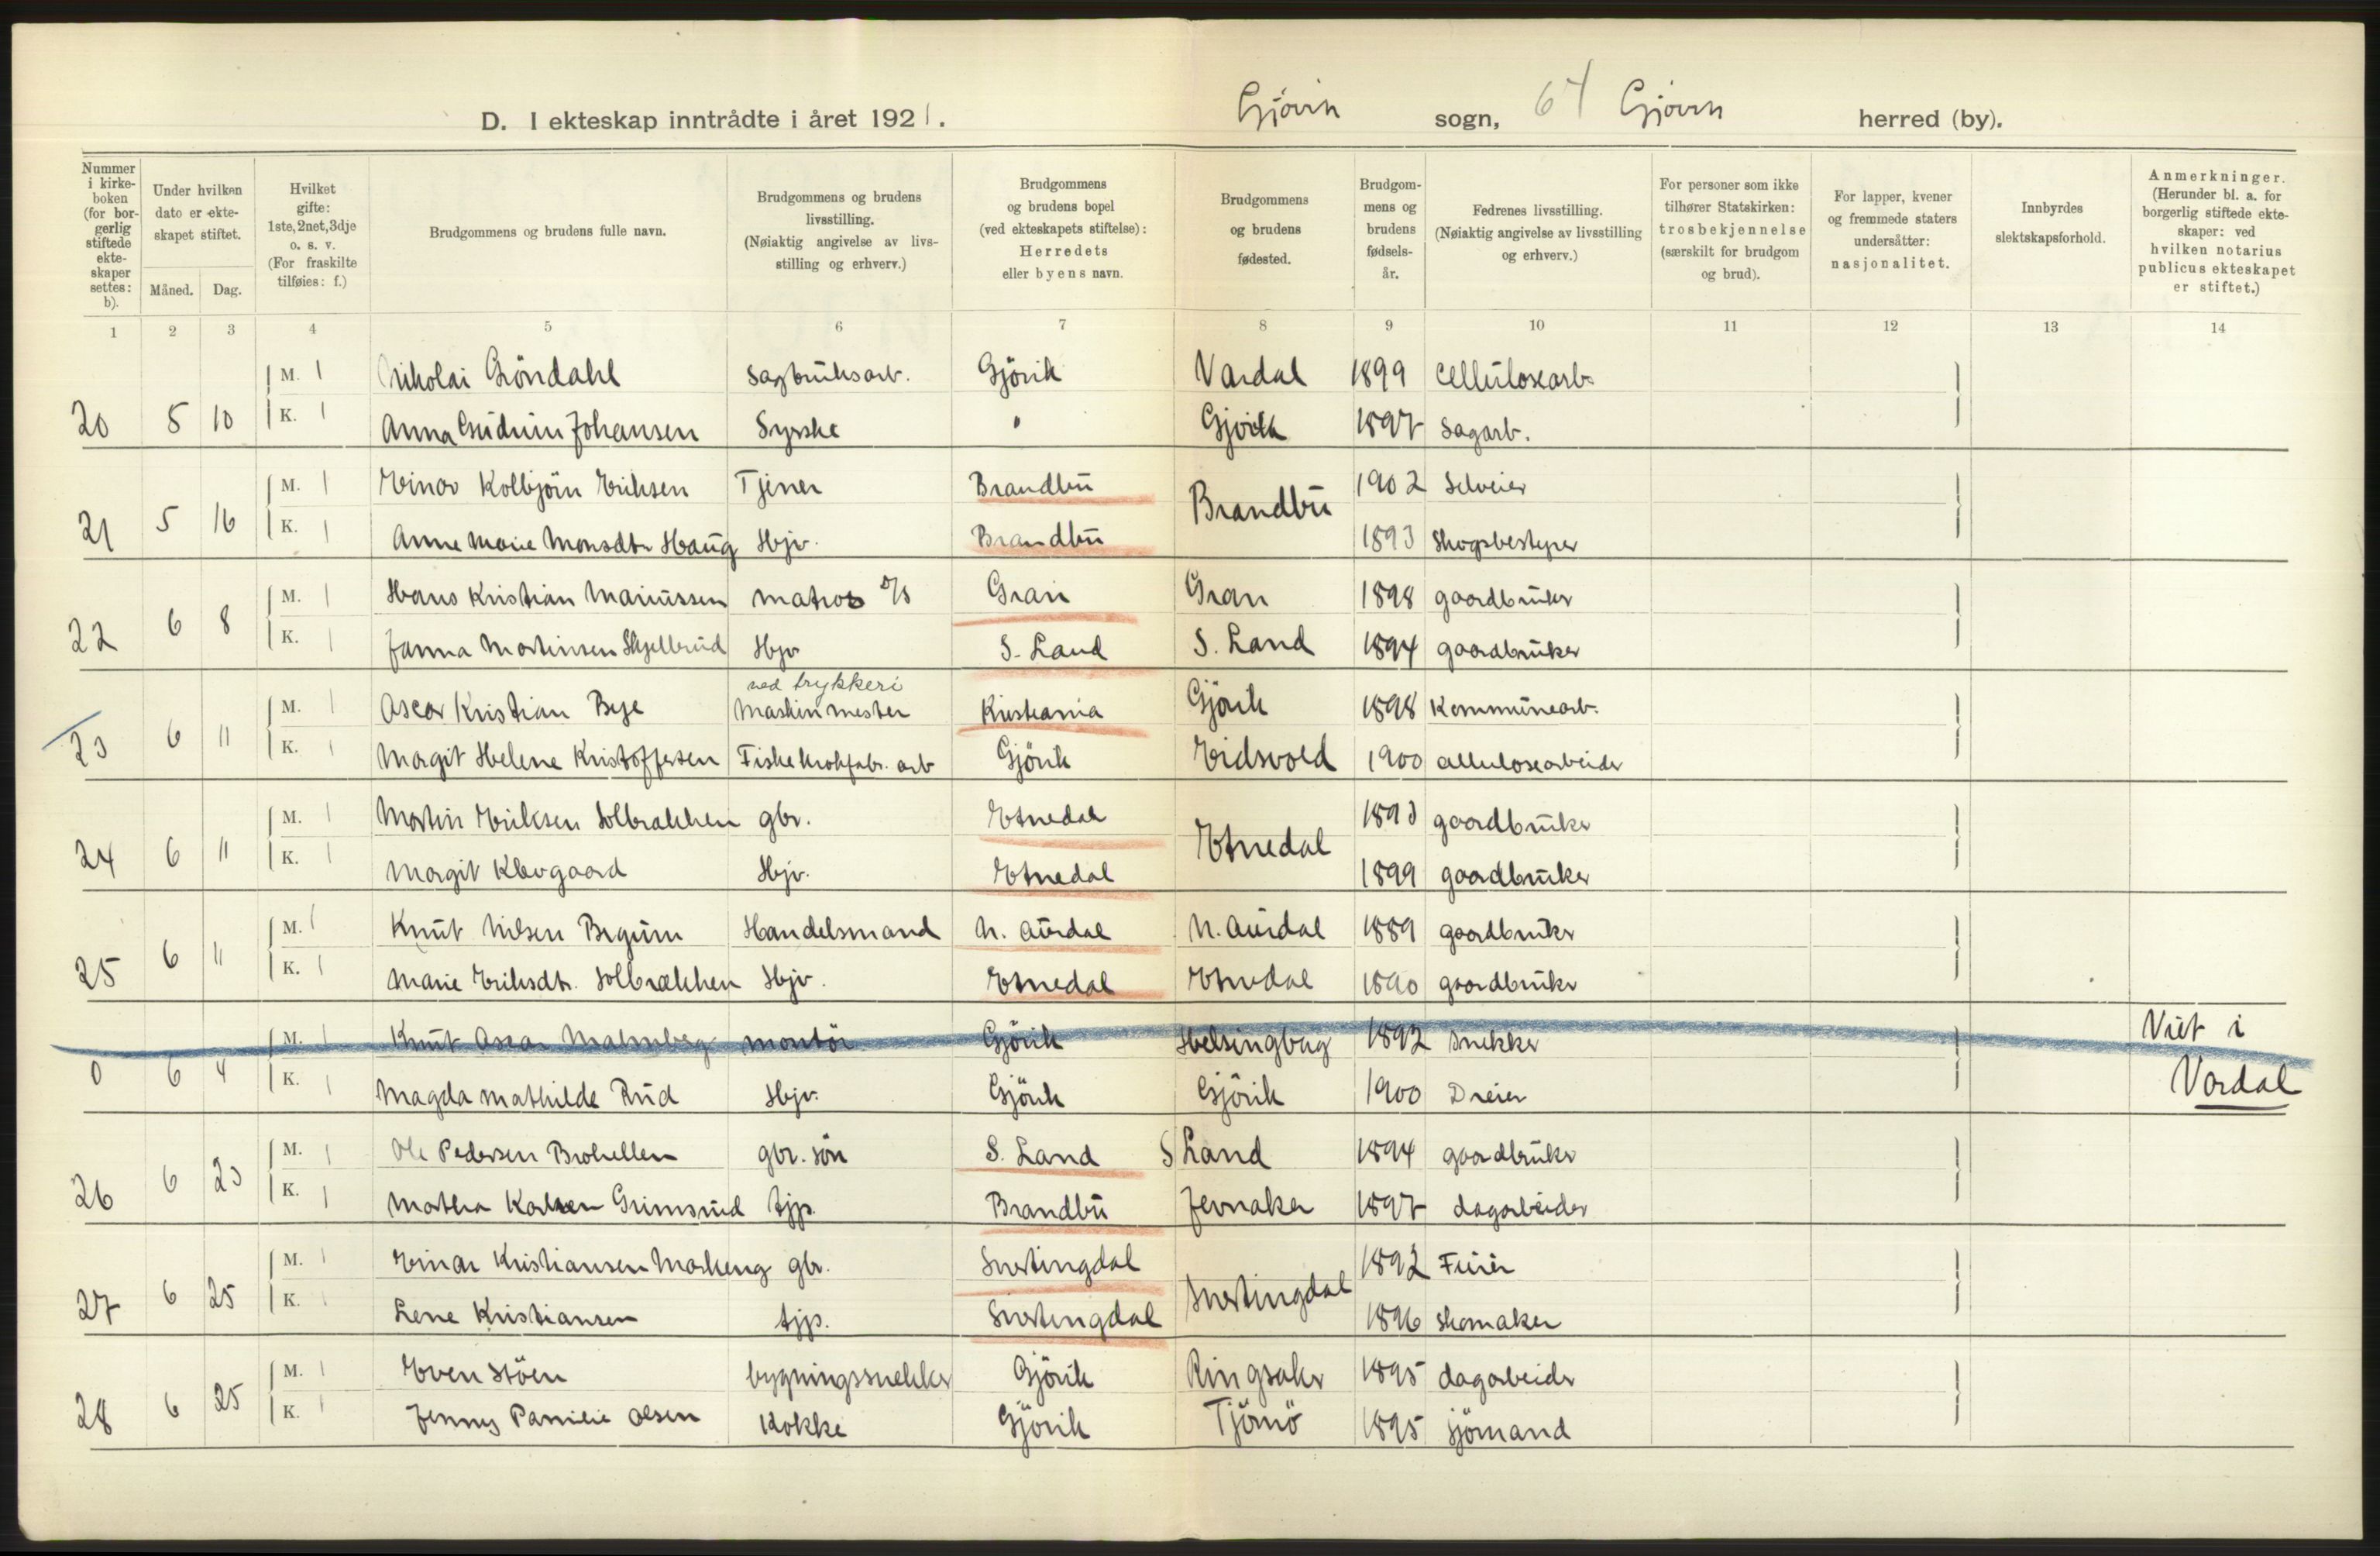 D. I ekteskap inntrådte i året 1921. Gjövik sogn, 64 Gjövik herred (by).
Nummer i kirke-boken (for bor-gerlig stiftede ekte-skaper settes: b).
Under hvilken dato er ekte-skapet stiftet.
Måned. Dag.
Hvilket gifte: 1ste, 2net, 3dje o. s. v. (For fraskilte tilføies: f.)
Brudgommens og brudens fulle navn.
Brudgommens og brudens livsstilling. (Nøiaktig angivelse av livs-stilling og erhverv.)
Brudgommens og brudens bopel (ved ekteskapets stiftelse): Herredets eller byens navn.
Brudgommens og brudens fødested.
Brudgom-mens og brudens fødsels-år.
Fedrenes livsstilling. (Nøiaktig angivelse av livsstilling og erhverv.)
For personer som ikke tilhører Statskirken: trosbekjennelse (særskilt for brudgom og brud).
For lapper, kvener og fremmede staters undersåtter: nasjonalitet.
Innbyrdes slektskapsforhold.
Anmerkninger. (Herunder bl. a. for borgerlig stiftede ekte-skaper: ved hvilken notarius publicus ekteskapet er stiftet.)
1 2 3 4 5 6 7 8 9 10 11 12 13 14
M. 1 Nikolai Gröndahl sagbruksarb. Gjövik Vardal 1899 Cellulosearb.
20 5 10 K. 1 Anna Gudrun Johansen Syerske " Gjövik 1897 Sagarb.
M. 1 Einar Kolbjörn Eriksen Tjener Brandbu Brandbu 1902 Selveier
21 5 16 K. 1 Anne Marie Monsdtr Haug Hjv. Brandbu 1893 Skogsbestyrer
M. 1 Hans Kristian Mariussen matros D/S Gran Gran 1898 gaardbruker
22 6 8 K. 1 Janna Martinsen Skjelbreid Hjv S. Land S. Land 1894 gaardbruker
ved trykkeri
M. 1 Oscar Kristian Bye Maskinmester Kristiania Gjövik 1898 Kommunearb.
23 6 11 K. 1 Margit Helene Kristoffersen Fiskekrokfabr. arb Gjövik Eidsvold 1900 cellulosearbeider
M. 1 Martin Eriksen Solbrækken gbr. Etnedal Etnedal 1893 gaardbruker
24 6 11 K. 1 Margit Klevgaard Hjv. Etnedal 1899 gaardbruker
M. 1 Knut Nilsen Brguin Handelsmand N. Aurdal N. Aurdal 1889 gaardbruker
25 6 11 K. 1 Marie Eriksdtr. Solbrækken Hjv. Etnedal Etnedal 1890 gaardbruker
M. 1 Knut Oscar Malmberg montör Gjövik Helsingborg 1892 Snekker Viet i
0 6 4 K. 1 Magda Mathilde Rud Hjv. Gjövik Gjövik 1900 Dreier Vardal
M. 1 Ole Pedersen Brohellen gbr. sön S. Land S Land 1894 gaardbruker
26 6 23 K. 1 Martha Karlsen Grimsrud tjp. Brandbu Jevnaker 1897 dagarbeider
M. 1 Einar Kristiansen Markeng gbr. Snertingdal Snertingdal 1892 Feier
27 6 25 K. 1 Lene Kristiansen tjp. Snertingdal 1896 skomaker
M. 1 Even Stöen bygningssnekker Gjövik Ringsaker 1895 dagarbeider
28 6 25 K. 1 Jenny Pamilie Olsen Kokke Gjövik Tjömö 1895 sjömand